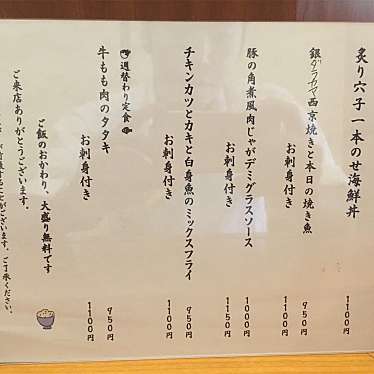 炙り穴子一本のせ海鮮丼
1100円
銀ダラカマ西京焼きと本日の焼き魚
950円
お刺身付き
1100円
豚の角煮風肉じゃがデミグラスソース
1000円
お刺身付き
1150円
チキンカツとカキと白身魚のミックスフライ
950円
お刺身付き
1100円
週替わり定食
牛もも肉のタタキ
950円
お刺身付き
1100円
ご飯のおかわり、大盛り無料です
ご来店ありがとうございます。
ございます。ご了承ください。